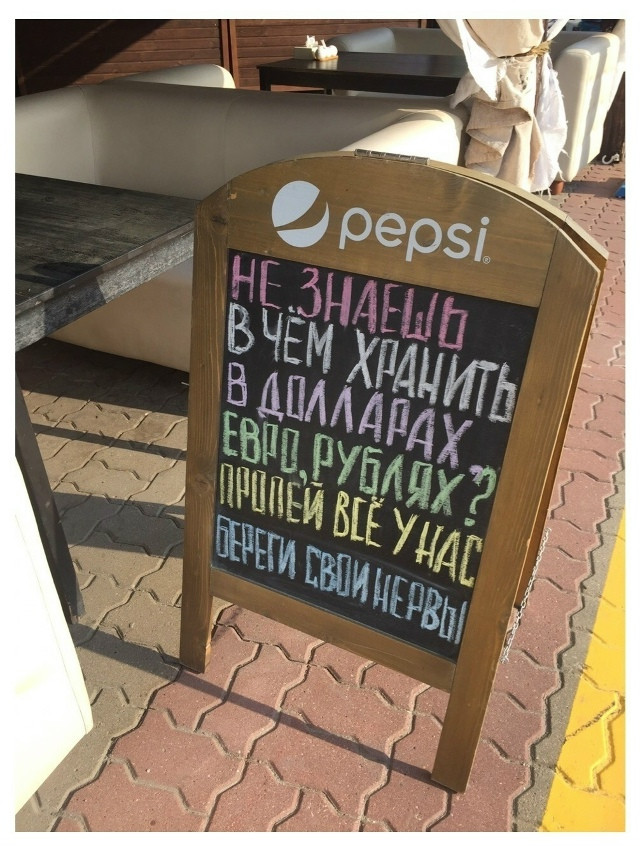 pepsi
НЕ ЗНАЕШЬ
В ЧЁМ ХРАНИТЬ
В ДОЛЛАРАХ,
ЕВРО, РУБЛЯХ?
ПРОПЕЙ ВСЁ У НАС
БЕРЕГИ СВОИ НЕРВЫ